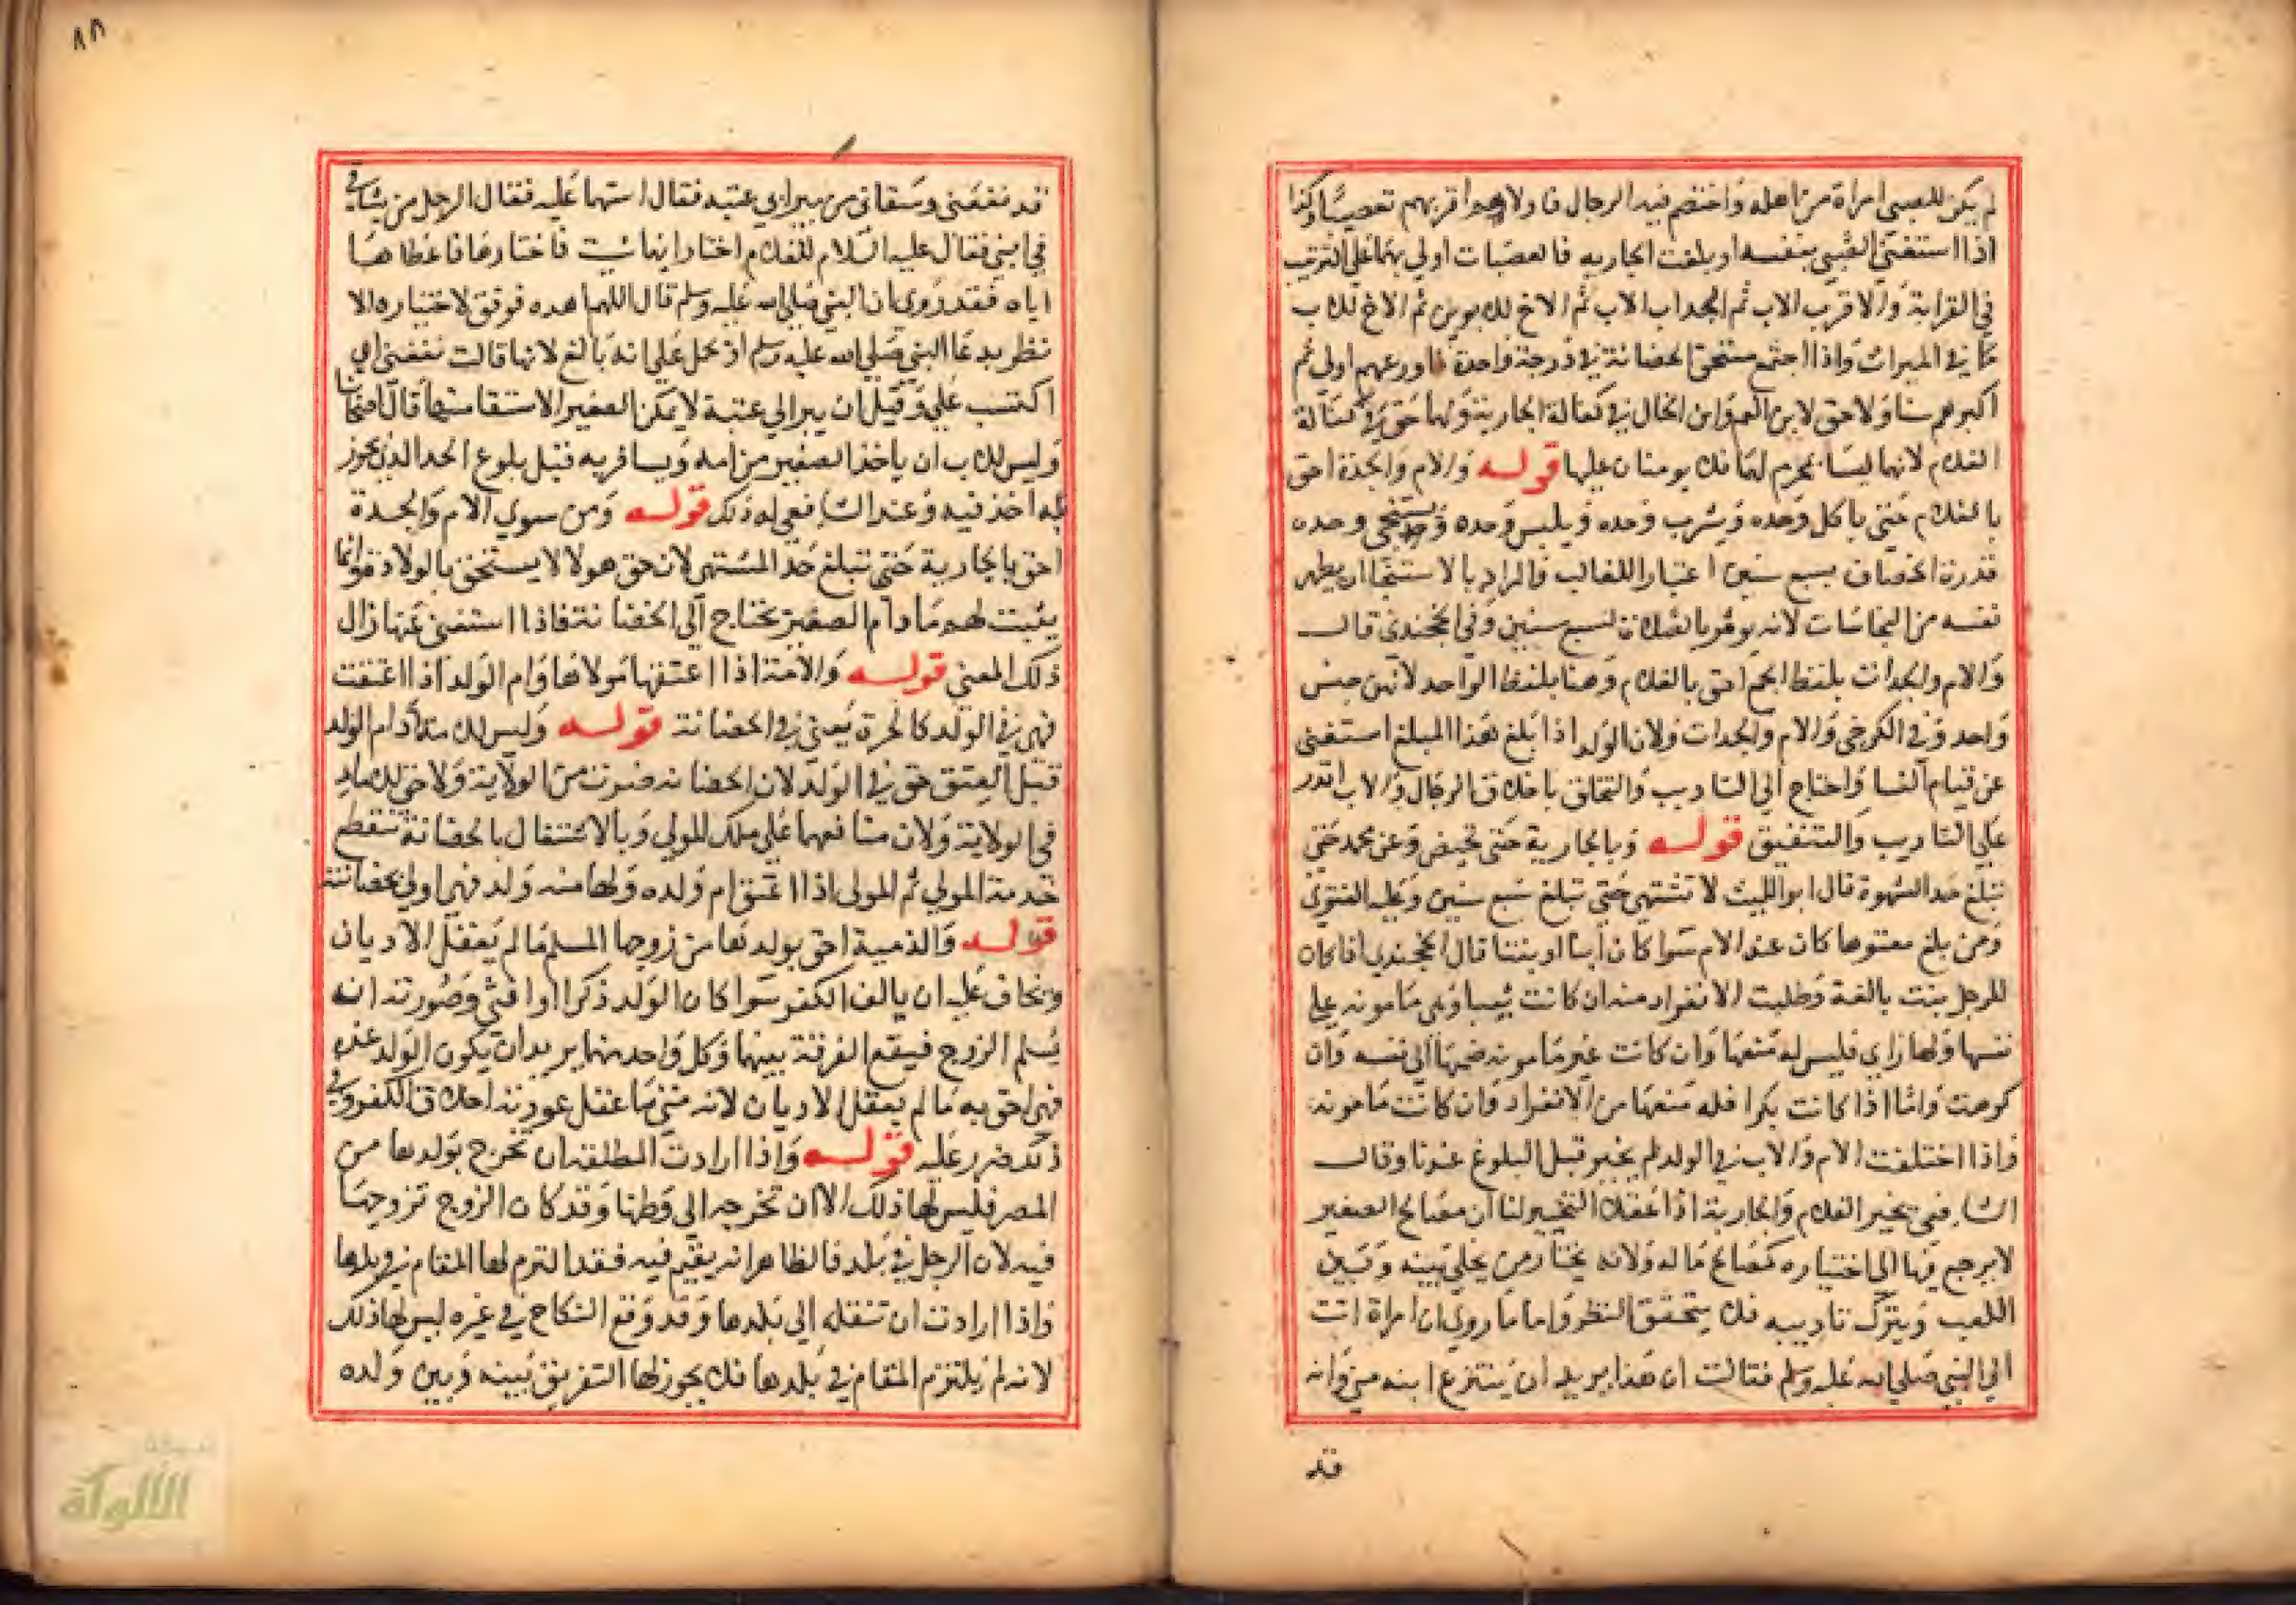 لم يكن للصبي امراة من اهله واختصم فيه الرجال فاولاهم اقربهم تعصيبا وكذا
اذا استغنى الصبي بنفسه او بلغت الجاريه فالعصبات اولي بهما علي الترتيب
في القرابة والاقرب الاب ثم الجد اب الاب ثم الاخ للابوين ثم الاخ للاب
كما في الميراث واذا اجتمع مستحق الحضانة في درجة واحدة فاورعهم اولى ثم
اكبرهم سنا ولا حق لابن العم وابن الخال في كفالة الجارية ولهما حق في كفالة
الغلام لانهما ليسا بمحرم لها فلا يومنان عليها قوله والام والجدة احق
بالغلام حتي ياكل وحده ويشرب وحده ويلبس وحده ويستنجي وحده
قدره الخصاف بسبع سنين اعتبارا للغالب والمراد بالاستنجا ان يطهر
نفسه من النجاسات لانه يومر بالصلاة لسبع سنين وفي الخجندي قال
والام والجدات بلفظ الجمع احق بالغلام وهنا بلفظ الواحد لانهن جنس
واحد وفي الكرخي والام والجدات ولان الولد اذا بلغ هذا المبلغ استغنى
عن قيام النسا واحتاج الي التاديب والتخلق باخلاق الرجال والاب اقدر
علي التاديب والتثقيف قوله وبالجارية حتى تحيض وعن محمد حتي
تبلغ حد الشهوة قال ابو الليث لا تشتهي حتي تبلغ تسع سنين وعليه الفتوى
ومن بلغ معتوها كان عند الام سوا كان ابنا او بنتا قال الخجندي اذا كان
للرجل بنت بالغة وطلبت الانفراد منه ان كانت ثيبا وهي مامونه علي
نفسها ولها راي فليس له منعها وان كانت غير مامونه ضمها الي نفسه وان
كرهت واما اذا كانت بكرا فله منعها من الانفراد وان كانت مامونه
واذا اختلفت الام والاب في الولد لم يخير قبل البلوغ عندنا وقال
الشافعي يخير الغلام والجارية اذا عقلا التخيير لنا ان مصالح الصغير
لا يرجع فيها الي اختياره كمصالح ماله ولانه يختار من يخلي بينه وبين
اللعب ويترك تاديبه فلا يتحقق النظر واما ما روي ان امراة اتت
الي النبي صلي الله عليه وسلم فقالت ان هذا يريد ان ينتزع ابنه مني وانه
قد
٨٨
قد نفعني وسقاني من بير ابي عتبه فقال استهما عليه فقال الرجل من يشاقني
في ابني فقال عليه السلام للغلام اختر ايهما شيت فاختارها فاعطاها
اياه فقد روي ان النبي صلي الله عليه وسلم قال اللهم اهده فوفق لاختياره الا
نظر بدعا النبي صلي الله عليه وسلم او يحمل علي انه بالغ لانها قالت نفعني اي
اكتسب علي وقيل ان بير ابي عتبة لا يمكن الصغير الاستقا منها قال اصحابنا
وليس للاب ان ياخذ الصغير من امه ويسافر به قبل بلوغ الحد الذي يجوز
له اخذ فيه وعند الشافعي له ذلك قوله ومن سوي الام والجدة
احق بالجارية حتي تبلغ حد المشتهي لان حق هولا لا يستحق بالولاد وانما
يثبت لهم ما دام الصغير يحتاج الي الحضانة فاذا استغنى عنها زال
ذلك المعني قوله والامة اذا اعتقها مولاها وام الولد اذا اعتقت
فهي في الولد كالحرة يعني في الحضانة قوله وليس للامة وام الولد
قبل العتق حق في الولد لان الحضانه ضرب من الولاية ولا حق للامه
في الولاية ولان منافعها علي ملك المولي وبالاشتغال بالحضانة تنقطع
خدمة المولي ثم المولي اذا اعتق ام ولده ولها منه ولد فهي اولي بحضانته
قوله والذمية احق بولدها من زوجها المسلم ما لم يعقل الاديان
ويخاف عليه ان يالف الكفر سوا كان الولد ذكرا او انثي وصورته انه
يسلم الزوج فيقع الفرقة بينهما وكل واحد منهما يريد ان يكون الولد عنده
فهي احق به ما لم يعقل الاديان لانه متي ما عقل عودته اخلاق الكفر وفي
ذلك ضرر عليه قوله واذا ارادت المطلقة ان تخرج بولدها من
المصر فليس لها ذلك الا ان تخرجه الي وطنها وقد كان الزوج تزوجها
فيه لان الرجل في بلد فالظاهر انه يقيم فيه فقد التزم لها المقام في بلدها
واذا ارادت ان تنقله الي بلدها وقد وقع النكاح في غيره ليس لها ذلك
لانه لم يلتزم المقام في بلدها فلا يجوز لها التفريق بينه وبين ولده
الألوكة